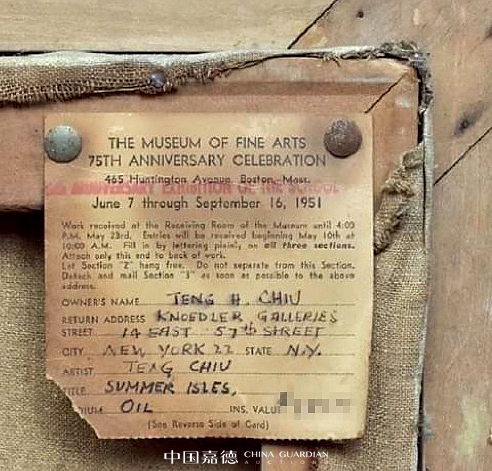 THE MUSEUM OF FINE ARTS
75TH ANNIVERSARY CELEBRATION
465 Huntington Avenue, Boston, Mass.
ANNIVERSARY EXHIBITION OF THE SCHOOL
June 7 through September 16, 1951
Work received at the Receiving Room of the Museum until 4:00
P.M. May 23rd. Entries will be received beginning May 10th at
10:00 A.M. Fill in by lettering plainly on all three sections.
Attach only this end to back of work.
Let Section "2" hang free. Do not separate from this Section.
Detach and mail Section "3" as soon as possible to the above
address.
OWNER'S NAME TENG H. CHIU
RETURN ADDRESS KNOEDLER GALLERIES
STREET 14 EAST 57th STREET
CITY NEW YORK 22 STATE N.Y.
ARTIST TENG CHIU
TITLE SUMMER ISLES,
DIUM OIL INS. VALU
(See Reverse Side of Card)
中国嘉德 CHINA GUARDIAN
AUCTIONS